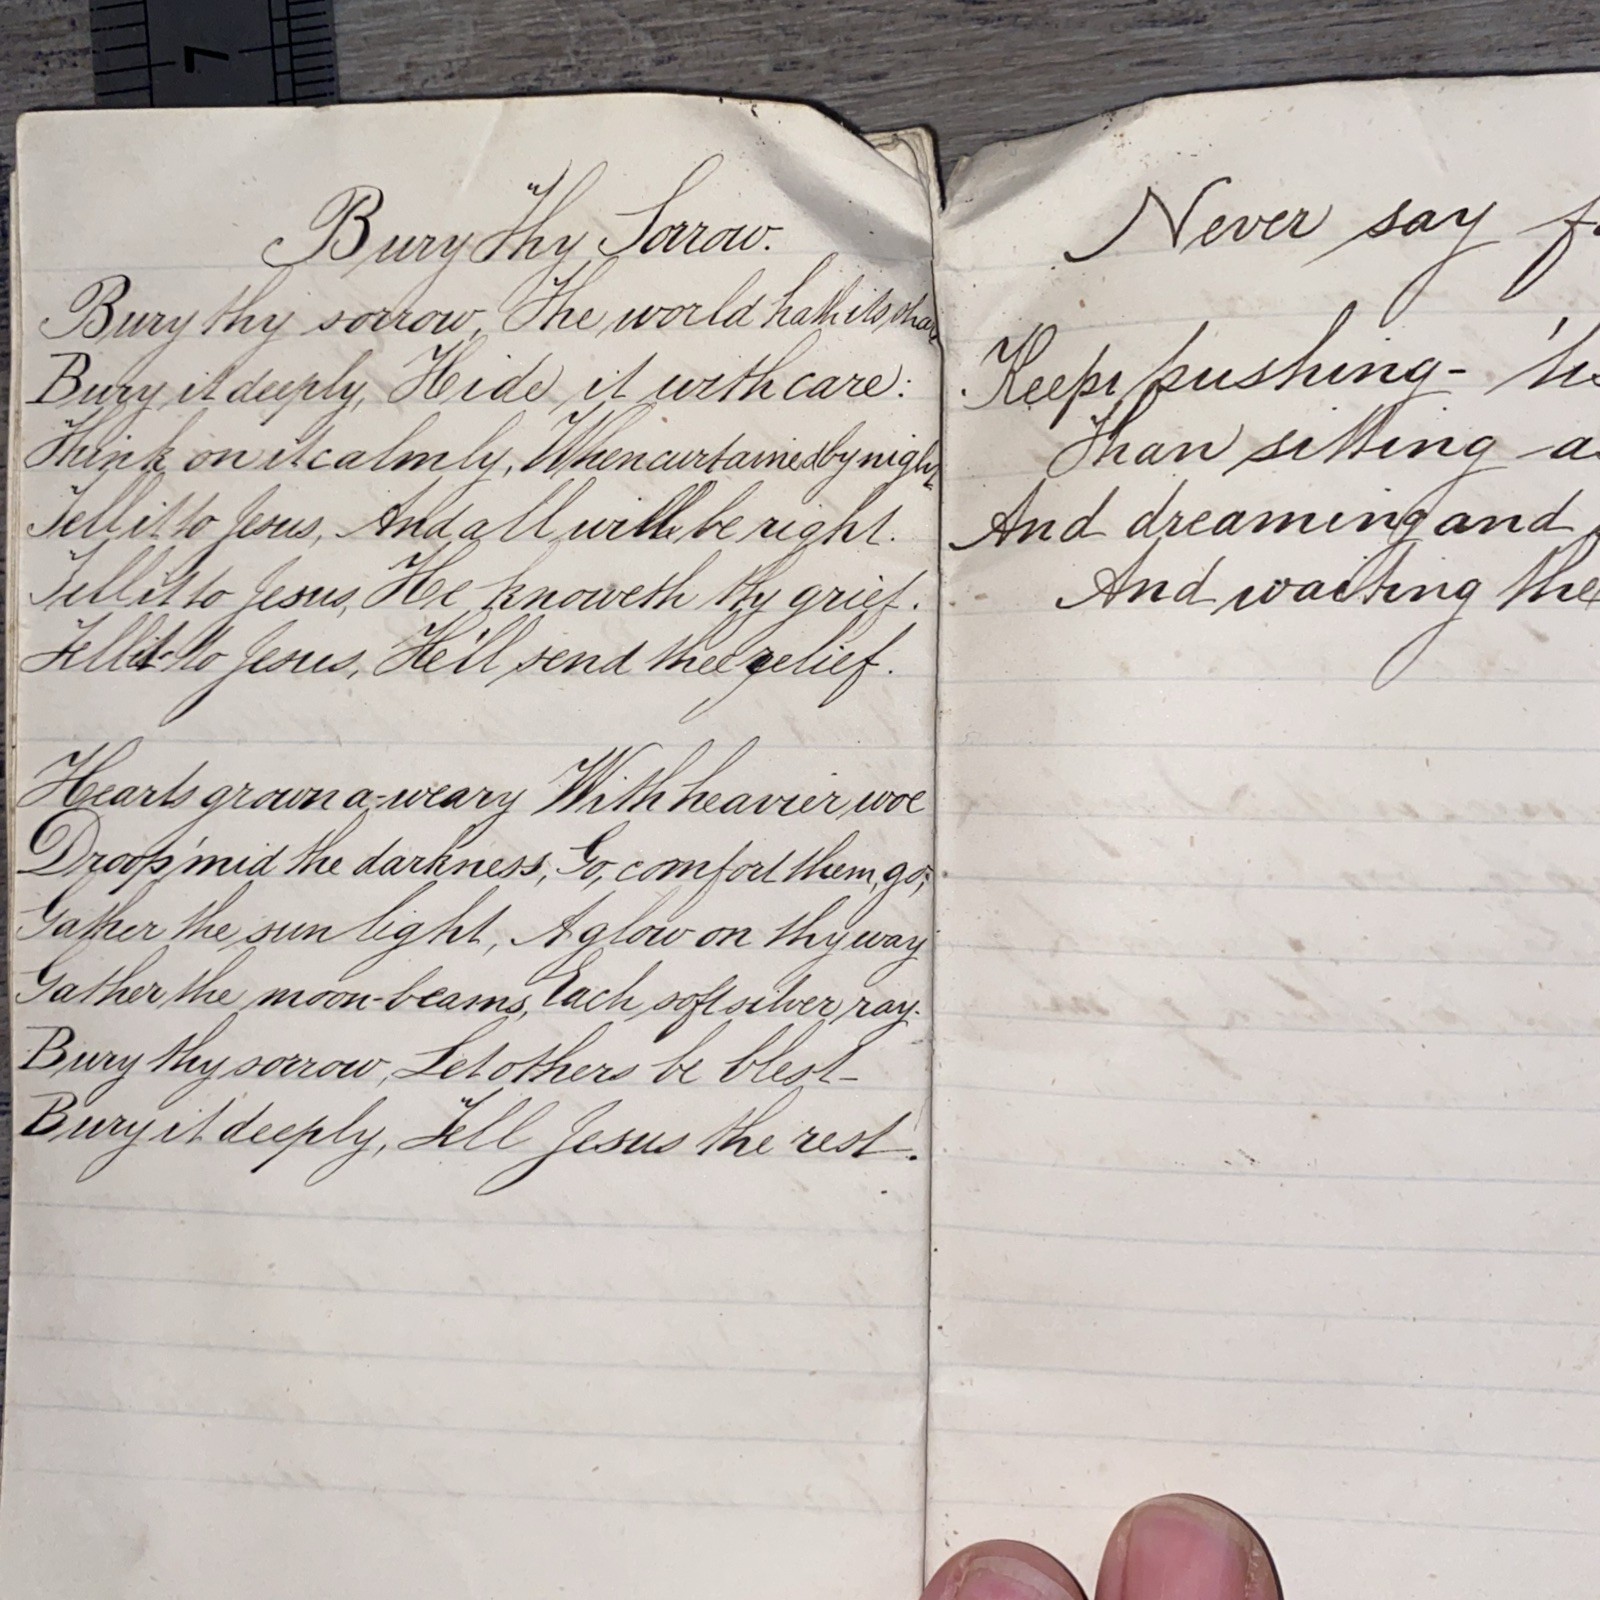 7
Bury Thy Sorrow.
Bury thy sorrow, The world hath its shar
Bury it deeply, Hide it with care:
Think on it calmly, When curtained by night,
Tell it to Jesus, And all will be right.
Tell it to Jesus, He knoweth thy grief.
Tell it to Jesus, He'll send thee relief.
Hearts grown a-weary With heavier woe
Droop 'mid the darkness, Go, comfort them, go;
Gather the sunlight, Aglow on thy way
Gather the moon-beams, Each soft silver ray.
Bury thy sorrow, Let others be blest-
Bury it deeply, Tell Jesus the rest.
Never say
Keep pushing-
Than sitting
And dreaming and
And waiting the